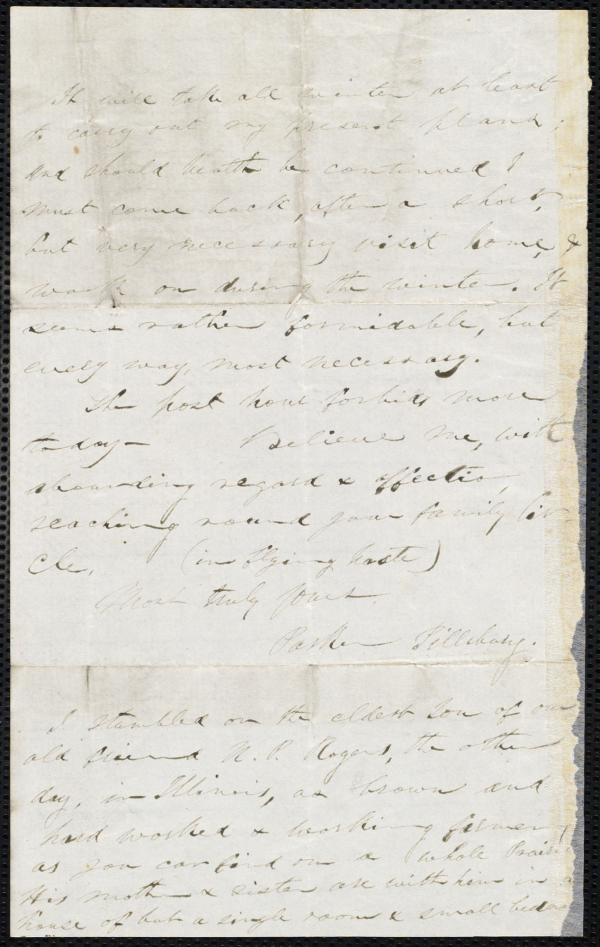 It will take all winter at least
to carry out my present plans;
and should health be continued I
must come back, after a short,
but very necessary visit home, &
work on during the winter. It
seems rather formidable, but
every way, most necessary.
The post hour forbids more
today— Believe me, with
abounding regard & affection,
reaching round your family Cir-
cle, (in flying haste)
Most truly yours
Parker Pillsbury.
I stumbled on the eldest son of our
old friend N. P. Rogers, the other
day, in Illinois, as brown and
hard worked & working farmer,
as you can find on a whole Prairie
His mother & sister are with him in a
house of but a single room & small bedroom